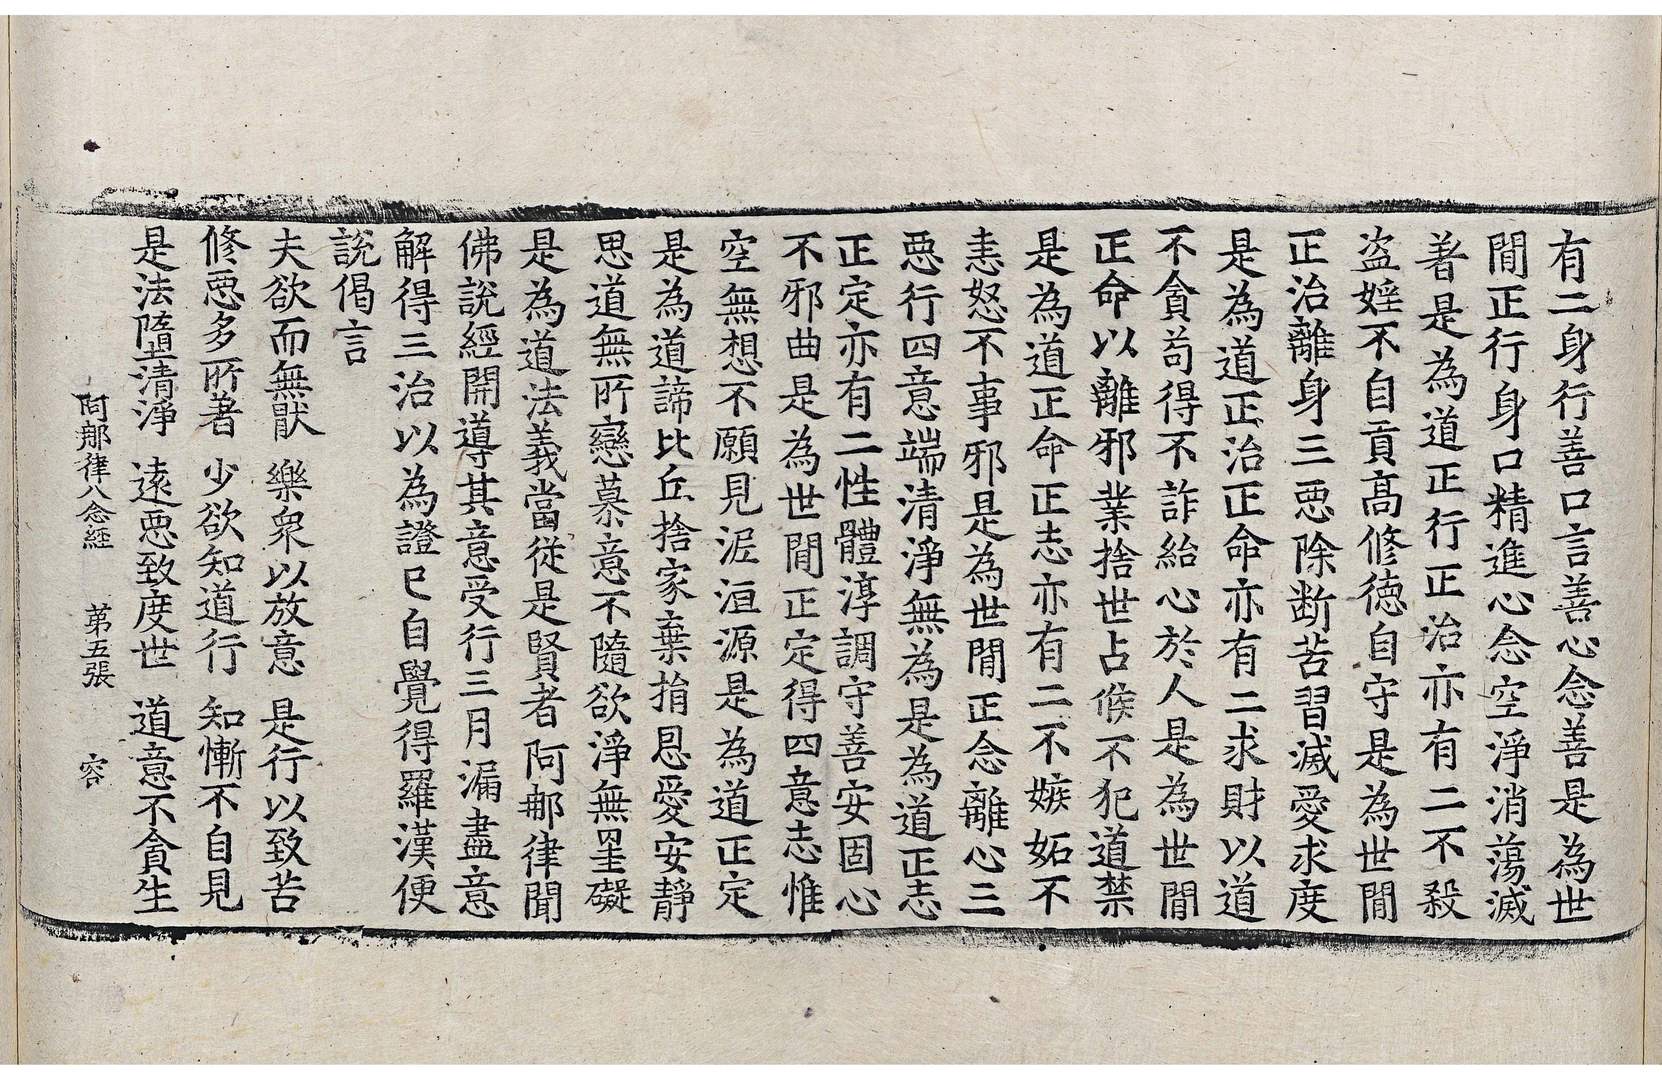 有二身行善口言善心念善是為世
間正行身口精進心念空淨消蕩滅
著是為道正行正治亦有二不殺
盜婬不自貢高修徳自守是為世間
正治離身三惡除断苦習滅愛求度
是為道正治正命亦有二求財以道
不貪苟得不詐紿心於人是為世間
正命以離邪業捨世占候不犯道禁
是為道正命正志亦有二不嫉妬不
恚怒不事邪是為世間正念離心三
惡行四意端清淨無為是為道正志
正定亦有二性體淳調守善安固心
不邪曲是為世間正定得四意志惟
空無想不願見泥洹源是為道正定
是為道諦比丘捨家棄捐恩愛安靜
思道無所戀慕意不隨欲淨無罣礙
是為道法義當從是賢者阿那律聞
佛說經開導其意受行三月漏盡意
解得三治以為證已自覺得羅漢便
說偈言
夫欲而無猒 樂衆以放意 是行以致苦
修惡多所著 少欲知道行 知慚不自見
是法墮清淨 遠惡致度世 道意不貪生
阿那律八念經 第五張 容